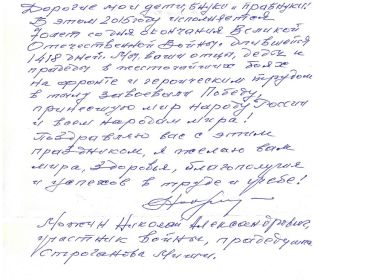 Дорогие мои дети, внуки и правнуки!
В этом 2015 году исполняется
70 лет со дня окончания Великой
Отечественной Войны, длившейся
1418 дней. Мы, ваши отцы, деды и
прадеды в жесточайших боях
на фронте и героическим трудом
в тылу завоевали Победу,
принесшую мир Народу России
и всем народам мира!
Поздравляю вас с этим
праздником, я желаю вам
мира, здоровья, благополучия
и успехов в труде и учебе!
Николай Александрович,
участник войны, прадедушка
Строганова Миши.